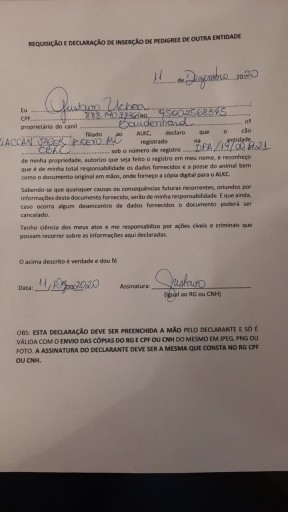 REQUISIÇÃO E DECLARAÇÃO DE INSERÇÃO DE PEDIGREE DE OUTRA ENTIDADE
11 de Dezembro 2020
Eu Gustavo Uchoa
CPF
proprietário do canil nº
filiado ao ALKC, declaro que o cão
registrado na entidade
sob o número de registro
de minha propriedade, autorizo que seja feito o registro em meu nome, e reconheço
que é de minha total responsabilidade os dados fornecidos e a posse do animal bem
como o documento original em mãos, onde forneço a cópia digital para o ALKC.
Sabendo-se que quaisquer causas ou consequências futuras recorrentes, oriundos por
informações deste documento fornecido, serão de minha responsabilidade. E que ainda,
caso ocorra algum desencontro de dados fornecidos o documento poderá ser
cancelado.
Tenho ciência dos meus atos e me responsabilizo por ações cíveis e criminais que
possam recorrer sobre as informações aqui declaradas.
O acima descrito é verdade e dou fé
Data: 11/ 2020 Assinatura: Gustavo
(Igual ao RG ou CNH)
OBS: ESTA DECLARAÇÃO DEVE SER PREENCHIDA A MÃO PELO DECLARANTE E SÓ É
VÁLIDA COM O ENVIO DAS CÓPIAS DO RG E CPF OU CNH DO MESMO EM JPEG, PNG OU
FOTO. A ASSINATURA DO DECLARANTE DEVE SER A MESMA QUE CONSTA NO RG CPF
OU CNH.